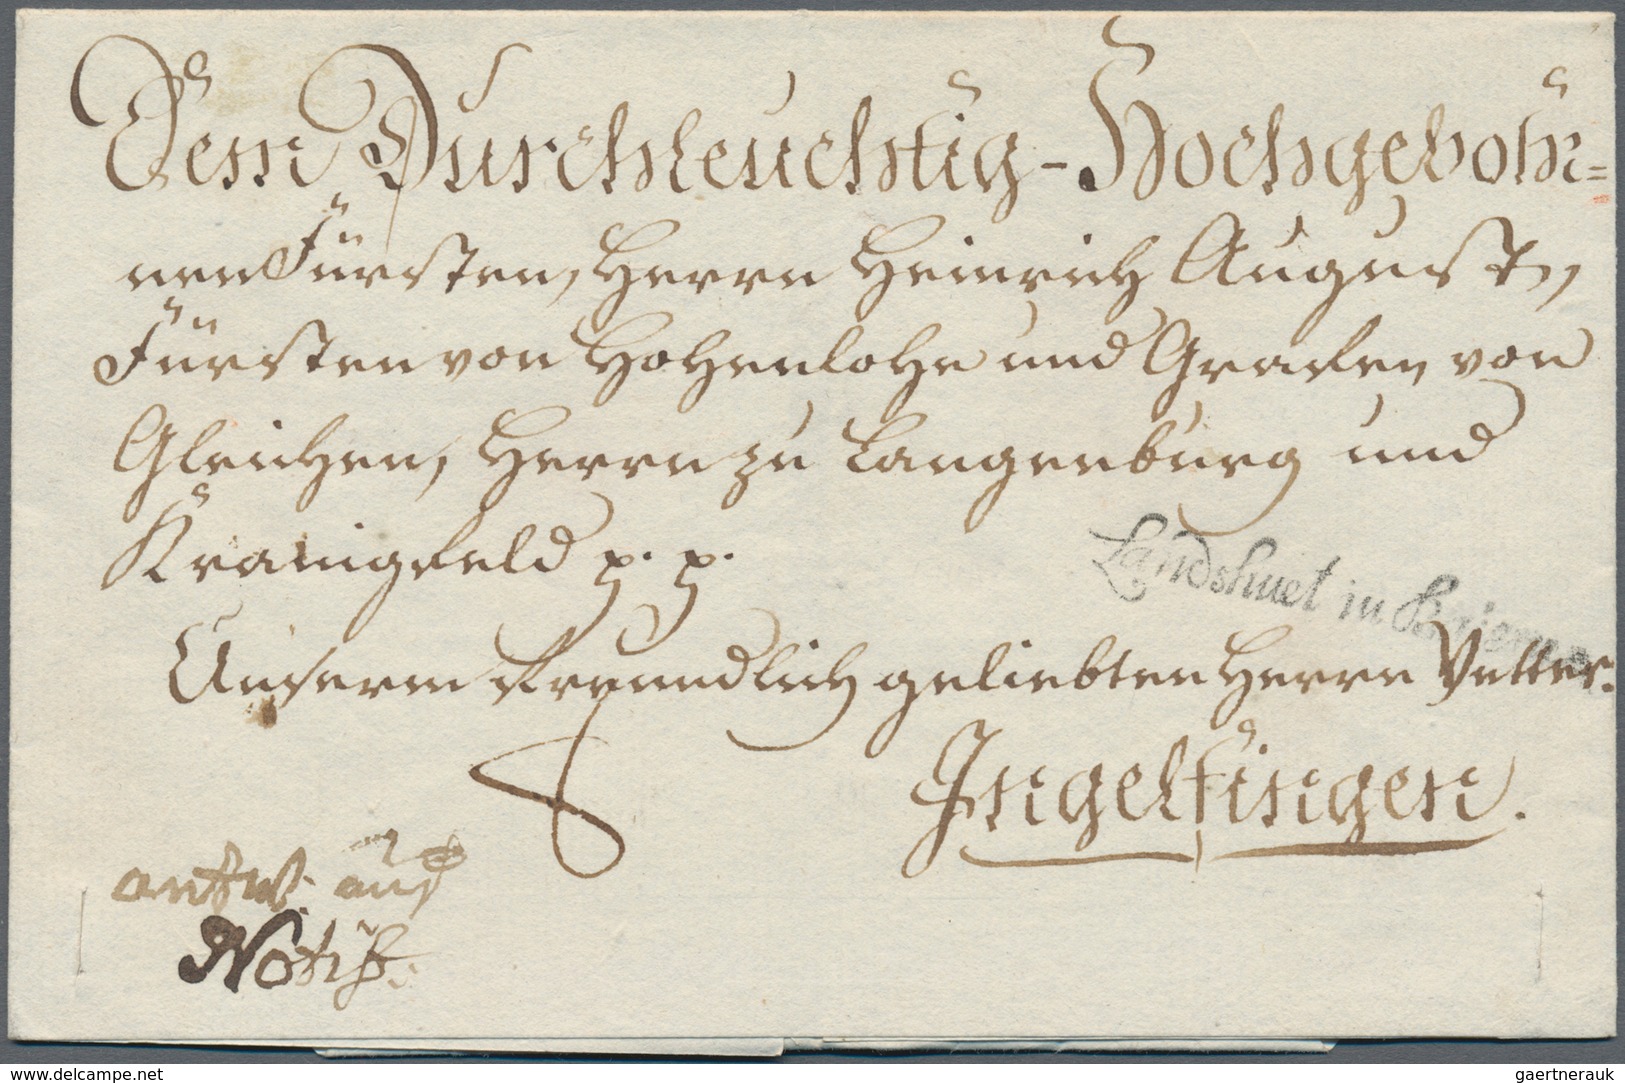 Dem Durchleuchtig-Hochgebohr=
nen Fürsten, Herrn Heinrich August,
Fürsten von Hohenlohe und Grafen von
Gleichen, Herrn zu Langenburg und
Kranigfeld p. p.
Landshuet in Baiern
Unserm freundlich geliebten Herrn Vetter.
Ingelfingen.
antw. auf
Notif.
www.delcampe.net
gaertnerauk